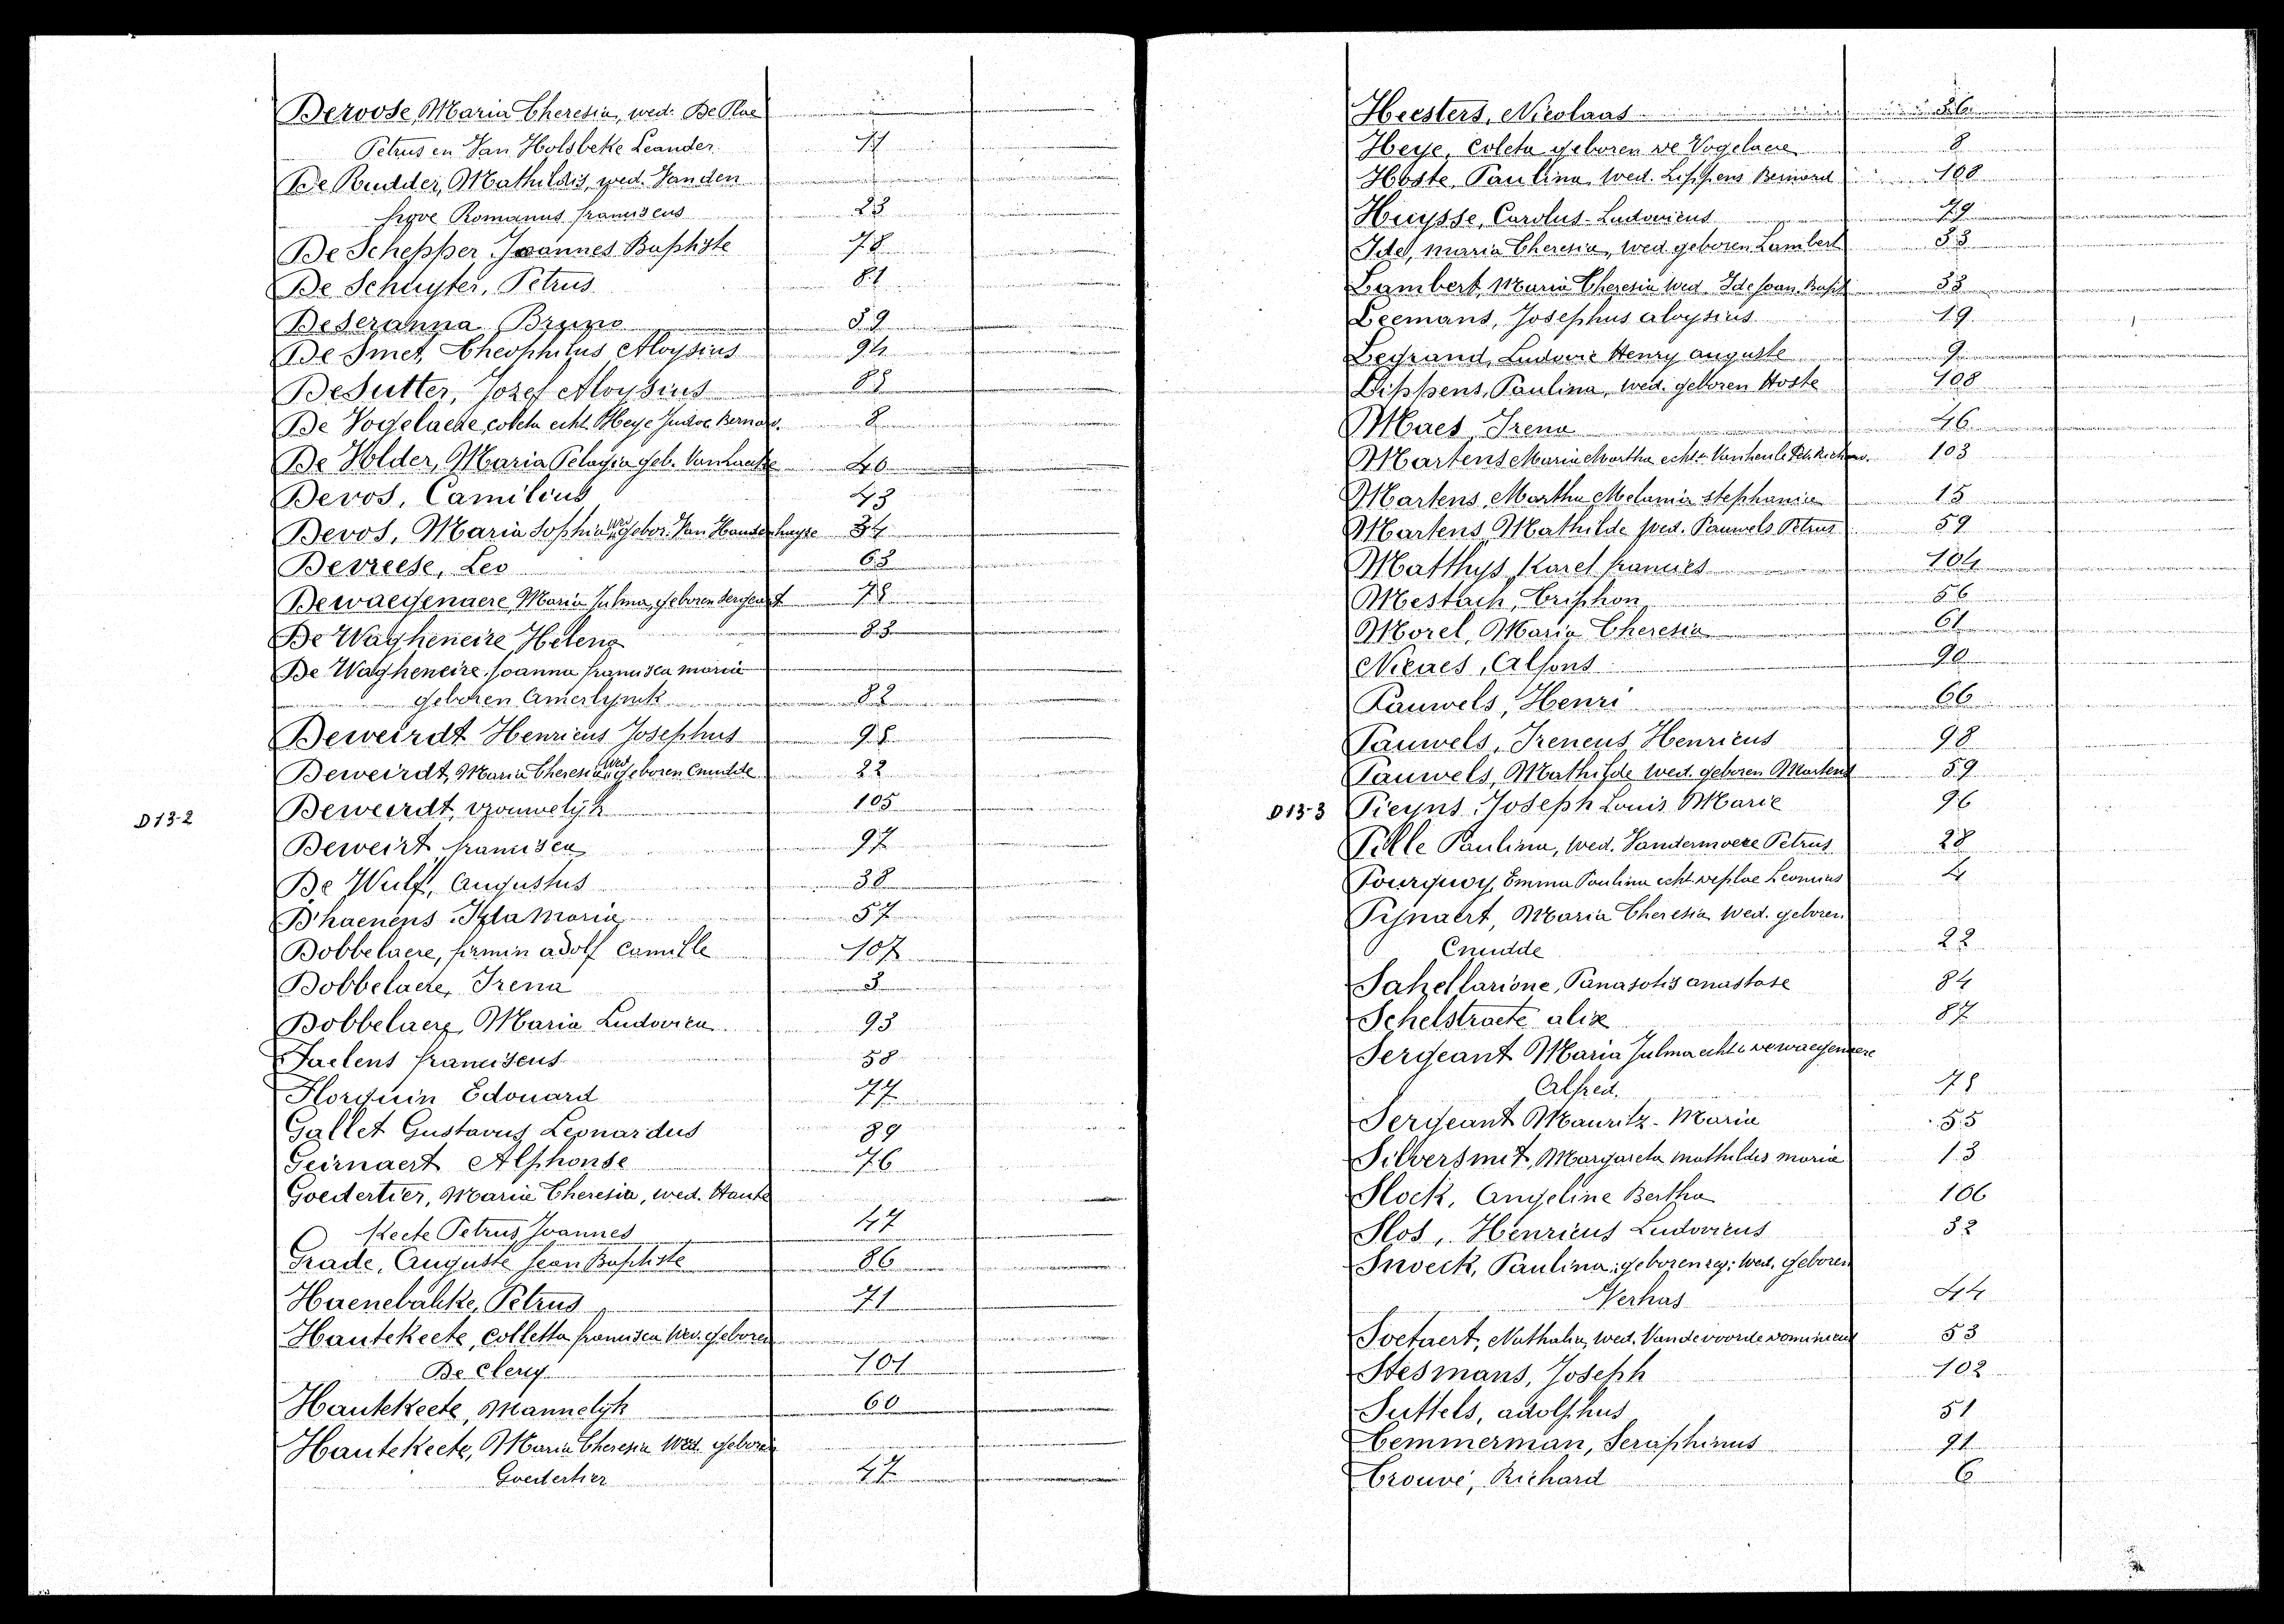 Deroose, Maria Theresia, wed. De Plae
Petrus en Van Holsbeke Leander 11
De Rudder, Mathildis, wed. Vanden
hyve Romanus franciscus 23
De Schepper Joannes Baptiste 78
De Schuyter, Petrus 81
Deseranna Bruno 39
De Smet, Theophilus Aloysius 94
Desutter, Jozef Aloysius
De Vogelaere coleta echt. Heye Judoc. Bernard. 8
De Volder, Maria Pelagia geb. Vanhaecke 40
Devos, Camilius 43
Devos, Maria Sophia wed gebor. Van Handenhuyse 34
Devreese, Leo 63
Dewaegenaere Maria Julma, geboren Sergeant 78
De Wagheneire, Helena 83
De Wagheneire, Joanna francisca maria
geboren Amerlynck 82
Deweirdt Henricus Josephus
Deweirdt, Maria Theresia wed geboren Cnudde 22
D 13-2
Deweerdt, vrouwelijk 105
Deweirt francisca 97
De Wulf, Augustus 38
D'haenens Ida Maria 57
Dobbelaere, firmin adolf camille 107
Dobbelaere, Irena 3
Dobbelaere, Maria Ludovica 93
Faelens franciscus 58
Florquin Edouard 77
Gallet Gustavus Leonardus 89
Geirnaert Alphonse 76
Goedertier, Maria Theresia, wed. Haute
Keete Petrus Joannes 47
Grade, Auguste Jean Baptiste 86
Haenebalcke, Petrus 71
Hautekeete, colletta francisca wed. geboren
De Clercq 101
Hautekeete, Mannelijk 60
Hautekeete, Maria Theresia wed. geboren
Goedertier 47
Heesters, Nicolaas 86
Heye, Coleta geboren de Vogelaere 8
Hoste, Paulina, wed. Lippens Bernard 108
Huysse, Carolus-Ludovicus 79
Ide, maria Theresia, wed. geboren Lambert 33
Lambert, Maria Theresia wed. Ide Joan. Bapt 33
Leemans, Josephus aloysius 19
Legrand, Ludovic Henry auguste 9
Lippens, Paulina, wed. geboren Hoste 108
Maes Irena 46
Martens Maria Martha echt. Vanheule Richard. 103
Martens, Martha Melania stephania 15
Martens Mathilde wed. Pauwels Petrus 59
Matthys Karel francies 104
Mestach, Triphon 56
Morel, Maria Theresia 61
Nicaes, Alfons 90
Pauwels, Henri 66
Pauwels, Ireneus Henricus 98
Pauwels, Mathilde wed. geboren Martens 59
D 13-3
Pieyns Joseph Louis Marie 96
Pille Paulina, wed. Vandermoere Petrus 28
Pourquoy, Emma Paulina echt deplae Leonius 4
Pynaert, Maria Theresia wed. geboren
Cnudde 22
Sakellarione, Panasotis anastase 84
Schelstraete alix 87
Sergeant Maria Julma echt. dewaegenaere
Alfred. 78
Sergeant Mauritz-Maria 55
Silversmet, Margareta mathildis maria 13
Slock, Angeline Bertha 106
Slos, Henricus Ludovicus 32
Snoeck, Paulina, geboren wed. geboren
Verhas 44
Soetaert, Nathalia, wed. Vandevoorde dominicus 53
Stesmans, Joseph 102
Suttels, adolphus 51
Temmerman, Seraphinus 91
Trouvé, Richard 6